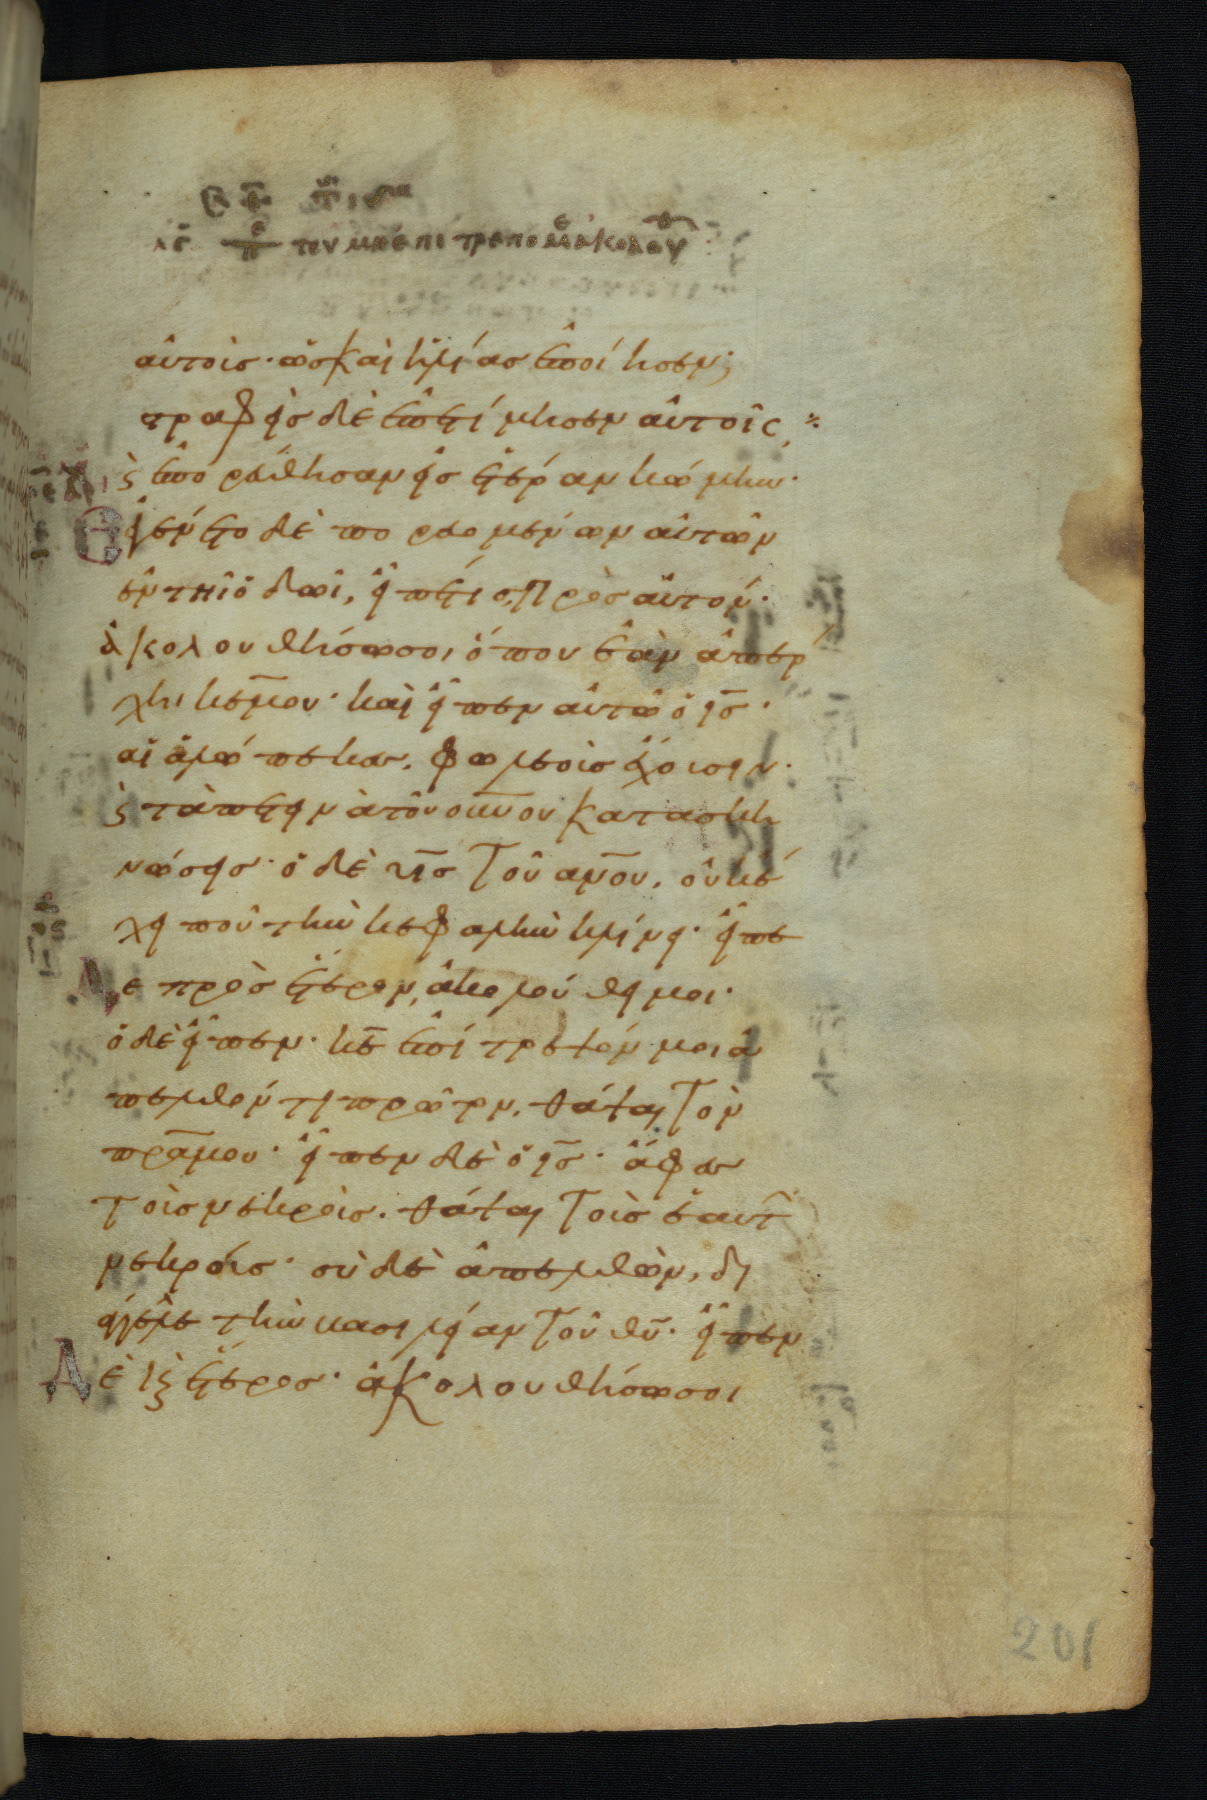 λε περὶ τοῦ μὴ ἐπιτρεπομε ἀκολου
αὐτοῖς· ὡς καὶ ἠλίας ἐποίησεν;
στραφεὶς δὲ ἐπετίμησεν αὐτοῖς
ϛ ἐπορεύθησαν εἰς ἑτέραν κώμην·
Ἐγένετο δὲ πορευομένων αὐτῶν
ἐν τῆι ὁδῶι, εἶπέ τις πρὸς αὐτόν·
ἀκολουθήσω σοι ὅπου ἐὰν ἀπέρ
χηι κε̅ μου· καὶ εἶπεν αὐτῶ ὁ ις̅·
αἱ ἀλώπεκες φωλεοὺς ἔχουσιν·
ϛ τὰ πετεινὰ τοῦ ουνου κατασκη
νώσεις· ὁ δὲ υις̅ τοῦ ανου̅, οὐκ ἔ
χει ποῦ τὴν κεφαλὴν κλίνει· εἶπε
Δὲ πρὸς ἕτερον, ἀκολούθει μοι·
ὁ δὲ εἶπεν· κε̅ ἐπίτρεψόν μοι ἀ
πελθόντι πρῶτον, θάψαι τὸν
πρα̅ μου· εἶπεν δὲ ὁ ις̅· ἄφες
τοὺς νεκροὺς θάψαι τοὺς ἑαυτ
νεκρούς· σὺ δὲ ἀπελθὼν, δι
άγγελε τὴν βασιλείαν τοῦ θυ̅· εἶπεν
Δὲ ϗ ἕτερος· ἀκολουθήσω σοι
201